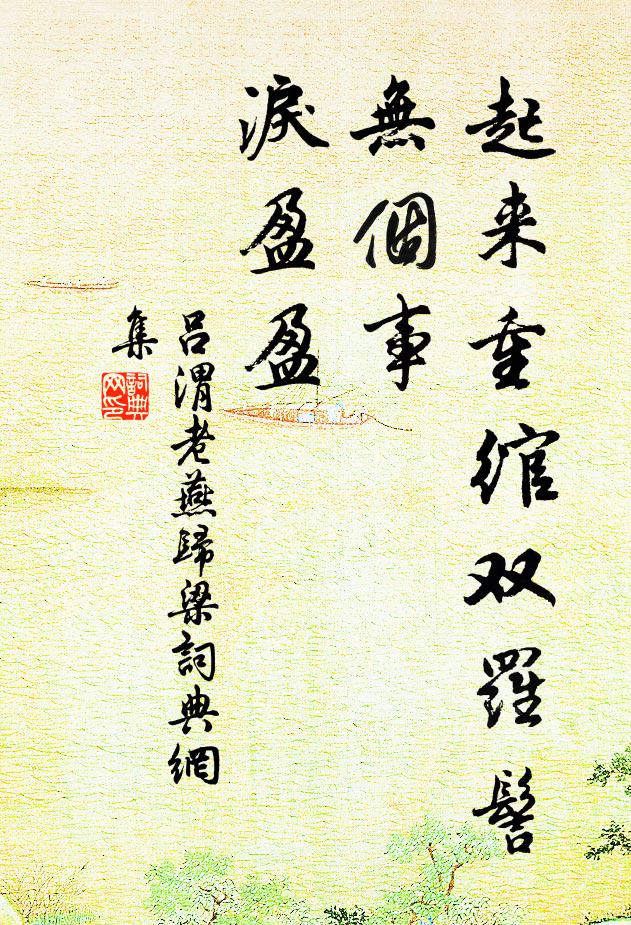 起来重綰双羅髻
無個事
淚盈盈
吕渭老燕歸梁詞典網
集
詞典
网印